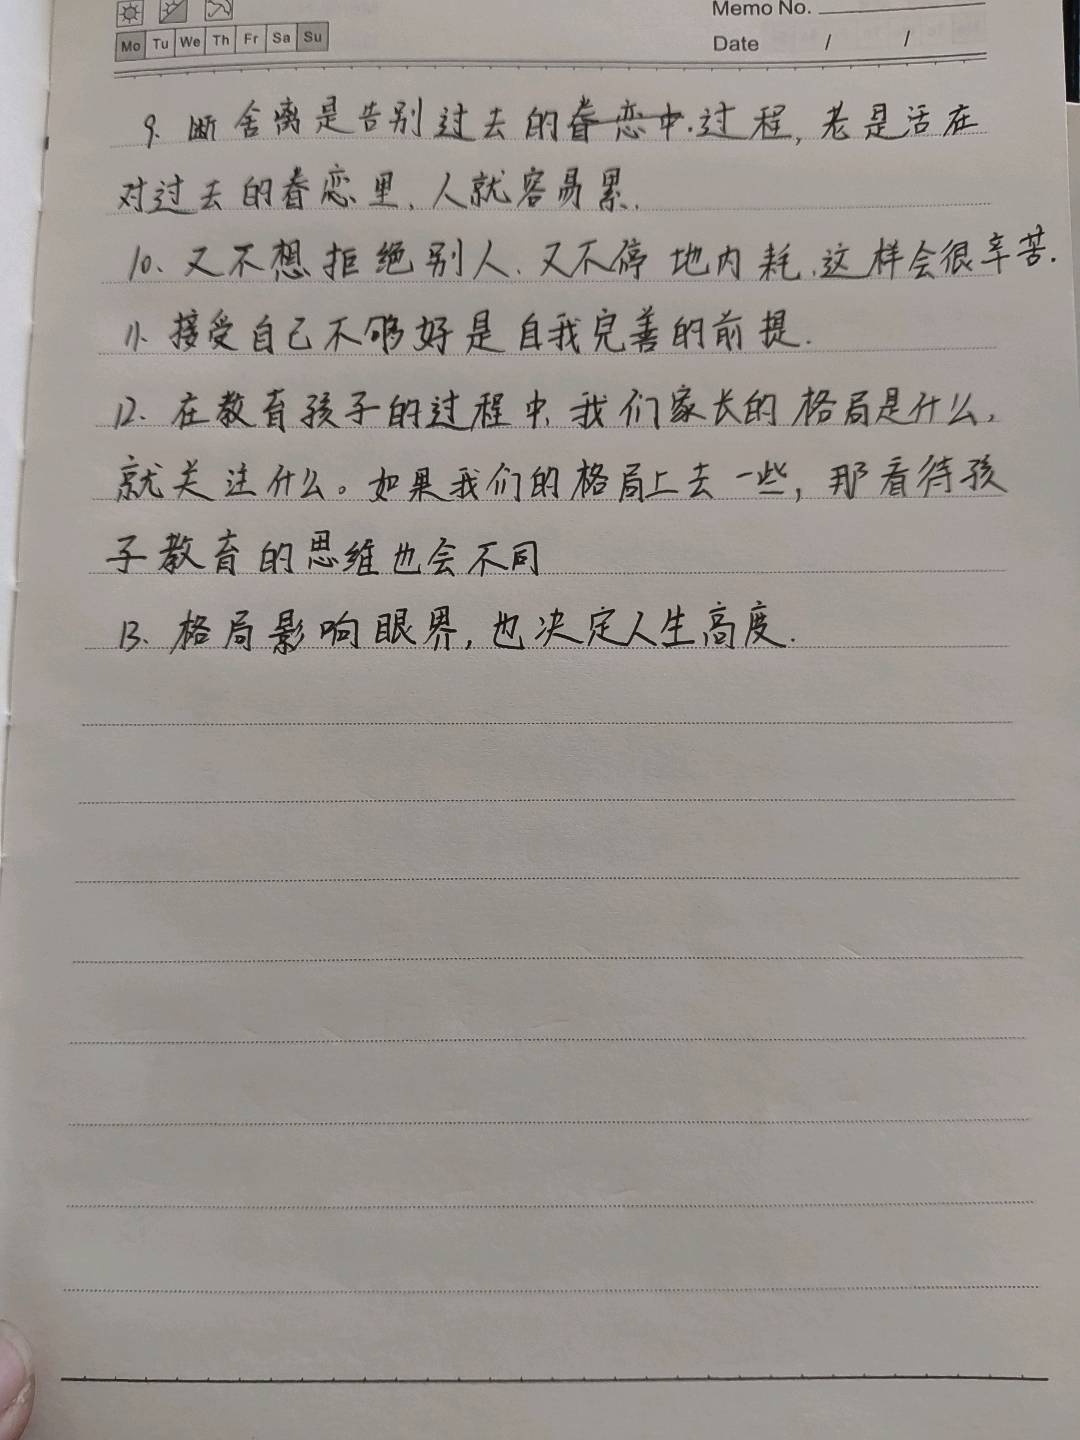 Memo No.
Mo Tu We Th Fr Sa Su
Date / /
9. 断舍离是告别过去的眷恋中.过程, 老是活在
对过去的眷恋里、人就容易累.
10、又不想拒绝别人、又不停地内耗、这样会很辛苦.
11、接受自己不够好是自我完善的前提.
12、在教育孩子的过程中、我们家长的格局是什么,
就关注什么。如果我们的格局上去一些, 那看待孩
子教育的思维也会不同
13、格局影响眼界, 也决定人生高度.